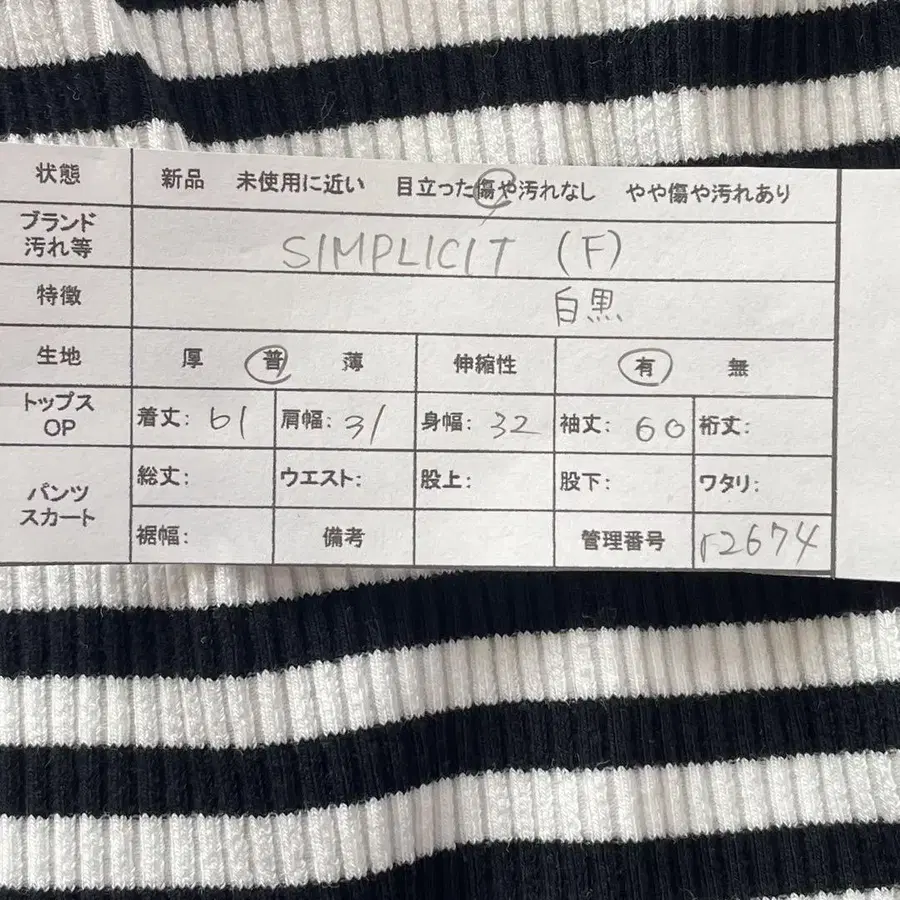 状態 新品 未使用に近い 目立った傷や汚れなし やや傷や汚れあり
ブランド
汚れ等
SIMPLICIT (F)
特徴 白黒
生地 厚 普 薄 伸縮性 有 無
トップス
OP
着丈: 61 肩幅: 31 身幅: 32 袖丈: 60 裄丈:
パンツ
スカート
総丈: ウエスト: 股上: 股下: ワタリ:
裾幅: 備考 管理番号 r2674